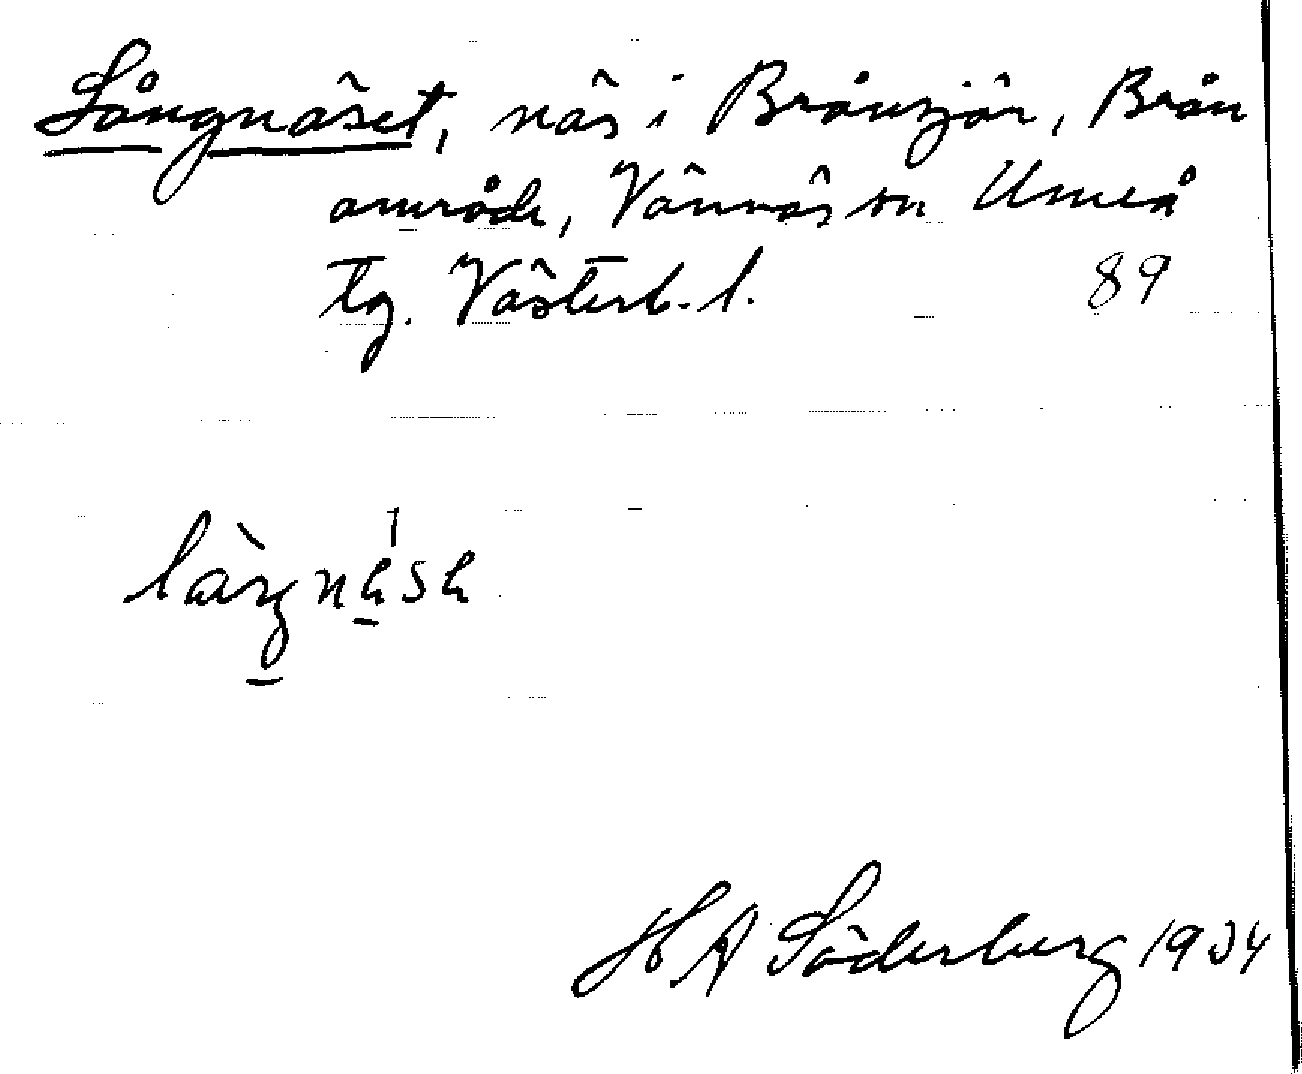 Långnäset, näs i Brånsjön, Brån
område, Vännäs sn Umeå
tg. Västerb. l. 89
H A Söderberg 1934